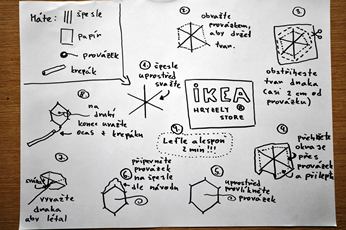 Máte:
špesle
papír
provázek
krepák
1. špesle
uprostřed
svažte
2.
obvažte
provázkem,
aby držel
tvar.
3.
obstřihněte
tvar draka
(asi 2 cm od
provázku)
IKEA
HRYZELY
STORE
4.
přehněte
okraje
přes
provázek
a přilepte
5.
uprostřed
provlíkněte
provázek
6.
připevněte
provázek
na špesle
dle návodu
7.
vyvažte
draka
aby létal
8.
na
druhý
konec uvažte
ocas z krepáku
9.
Leťte alespoň
2 min!!!